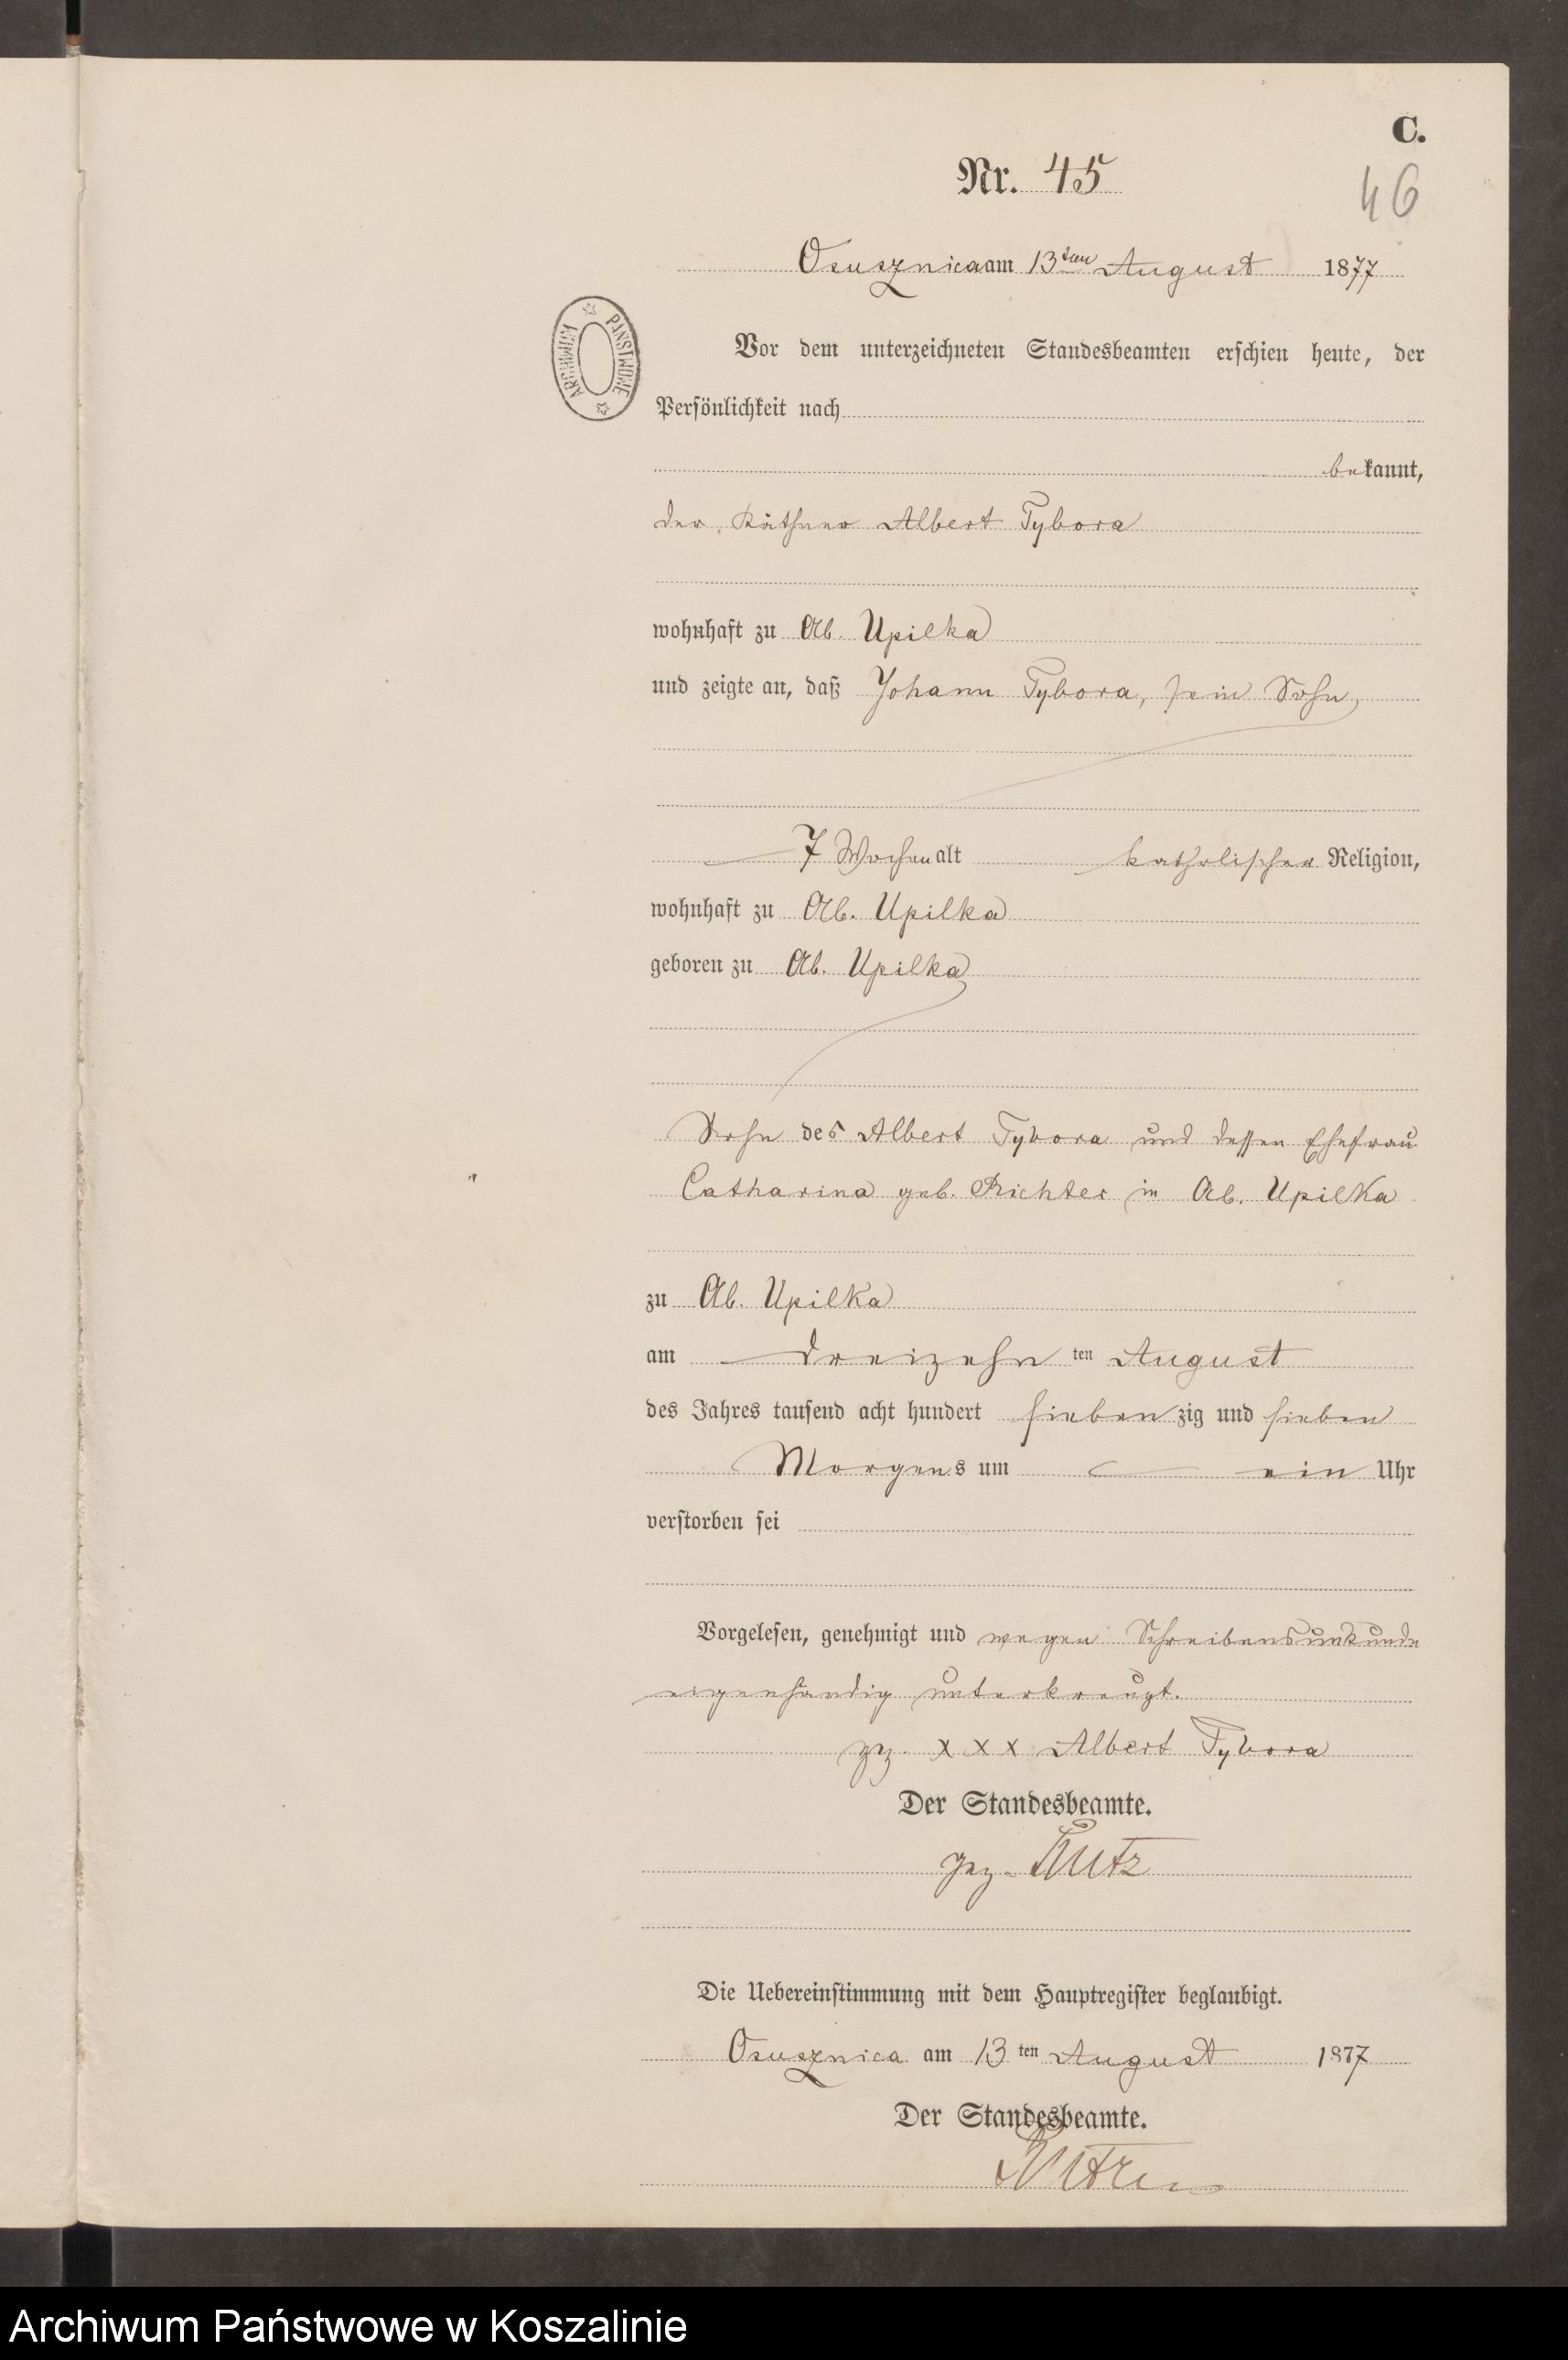 C.
Nr. 45
46
Osusznica am 13ten August 1877
ARCHIWUM PAŃSTWOWE
Vor dem unterzeichneten Standesbeamten erschien heute, der
Persönlichkeit nach
bekannt,
der Käthner Albert Tybora
wohnhaft zu Ab. Upilka
und zeigte an, daß Johann Tybora, sein Sohn,
7 Wochen alt katholischer Religion,
wohnhaft zu Ab. Upilka
geboren zu Ab. Upilka
Sohn des Albert Tybora und dessen Ehefrau
Catharina geb. Richter in Ab. Upilka
zu Ab. Upilka
am dreizehn ten August
des Jahres tausend acht hundert sieben zig und sieben
Morgens um ein Uhr
verstorben sei
Vorgelesen, genehmigt und wegen Schreibensunkunde
eigenhändig unterkreuzt.
gz. x x x Albert Tybora
Der Standesbeamte.
gez.
Die Uebereinstimmung mit dem Hauptregister beglaubigt.
Osusznica am 13 ten August 1877
Der Standesbeamte.
Archiwum Państwowe w Koszalinie